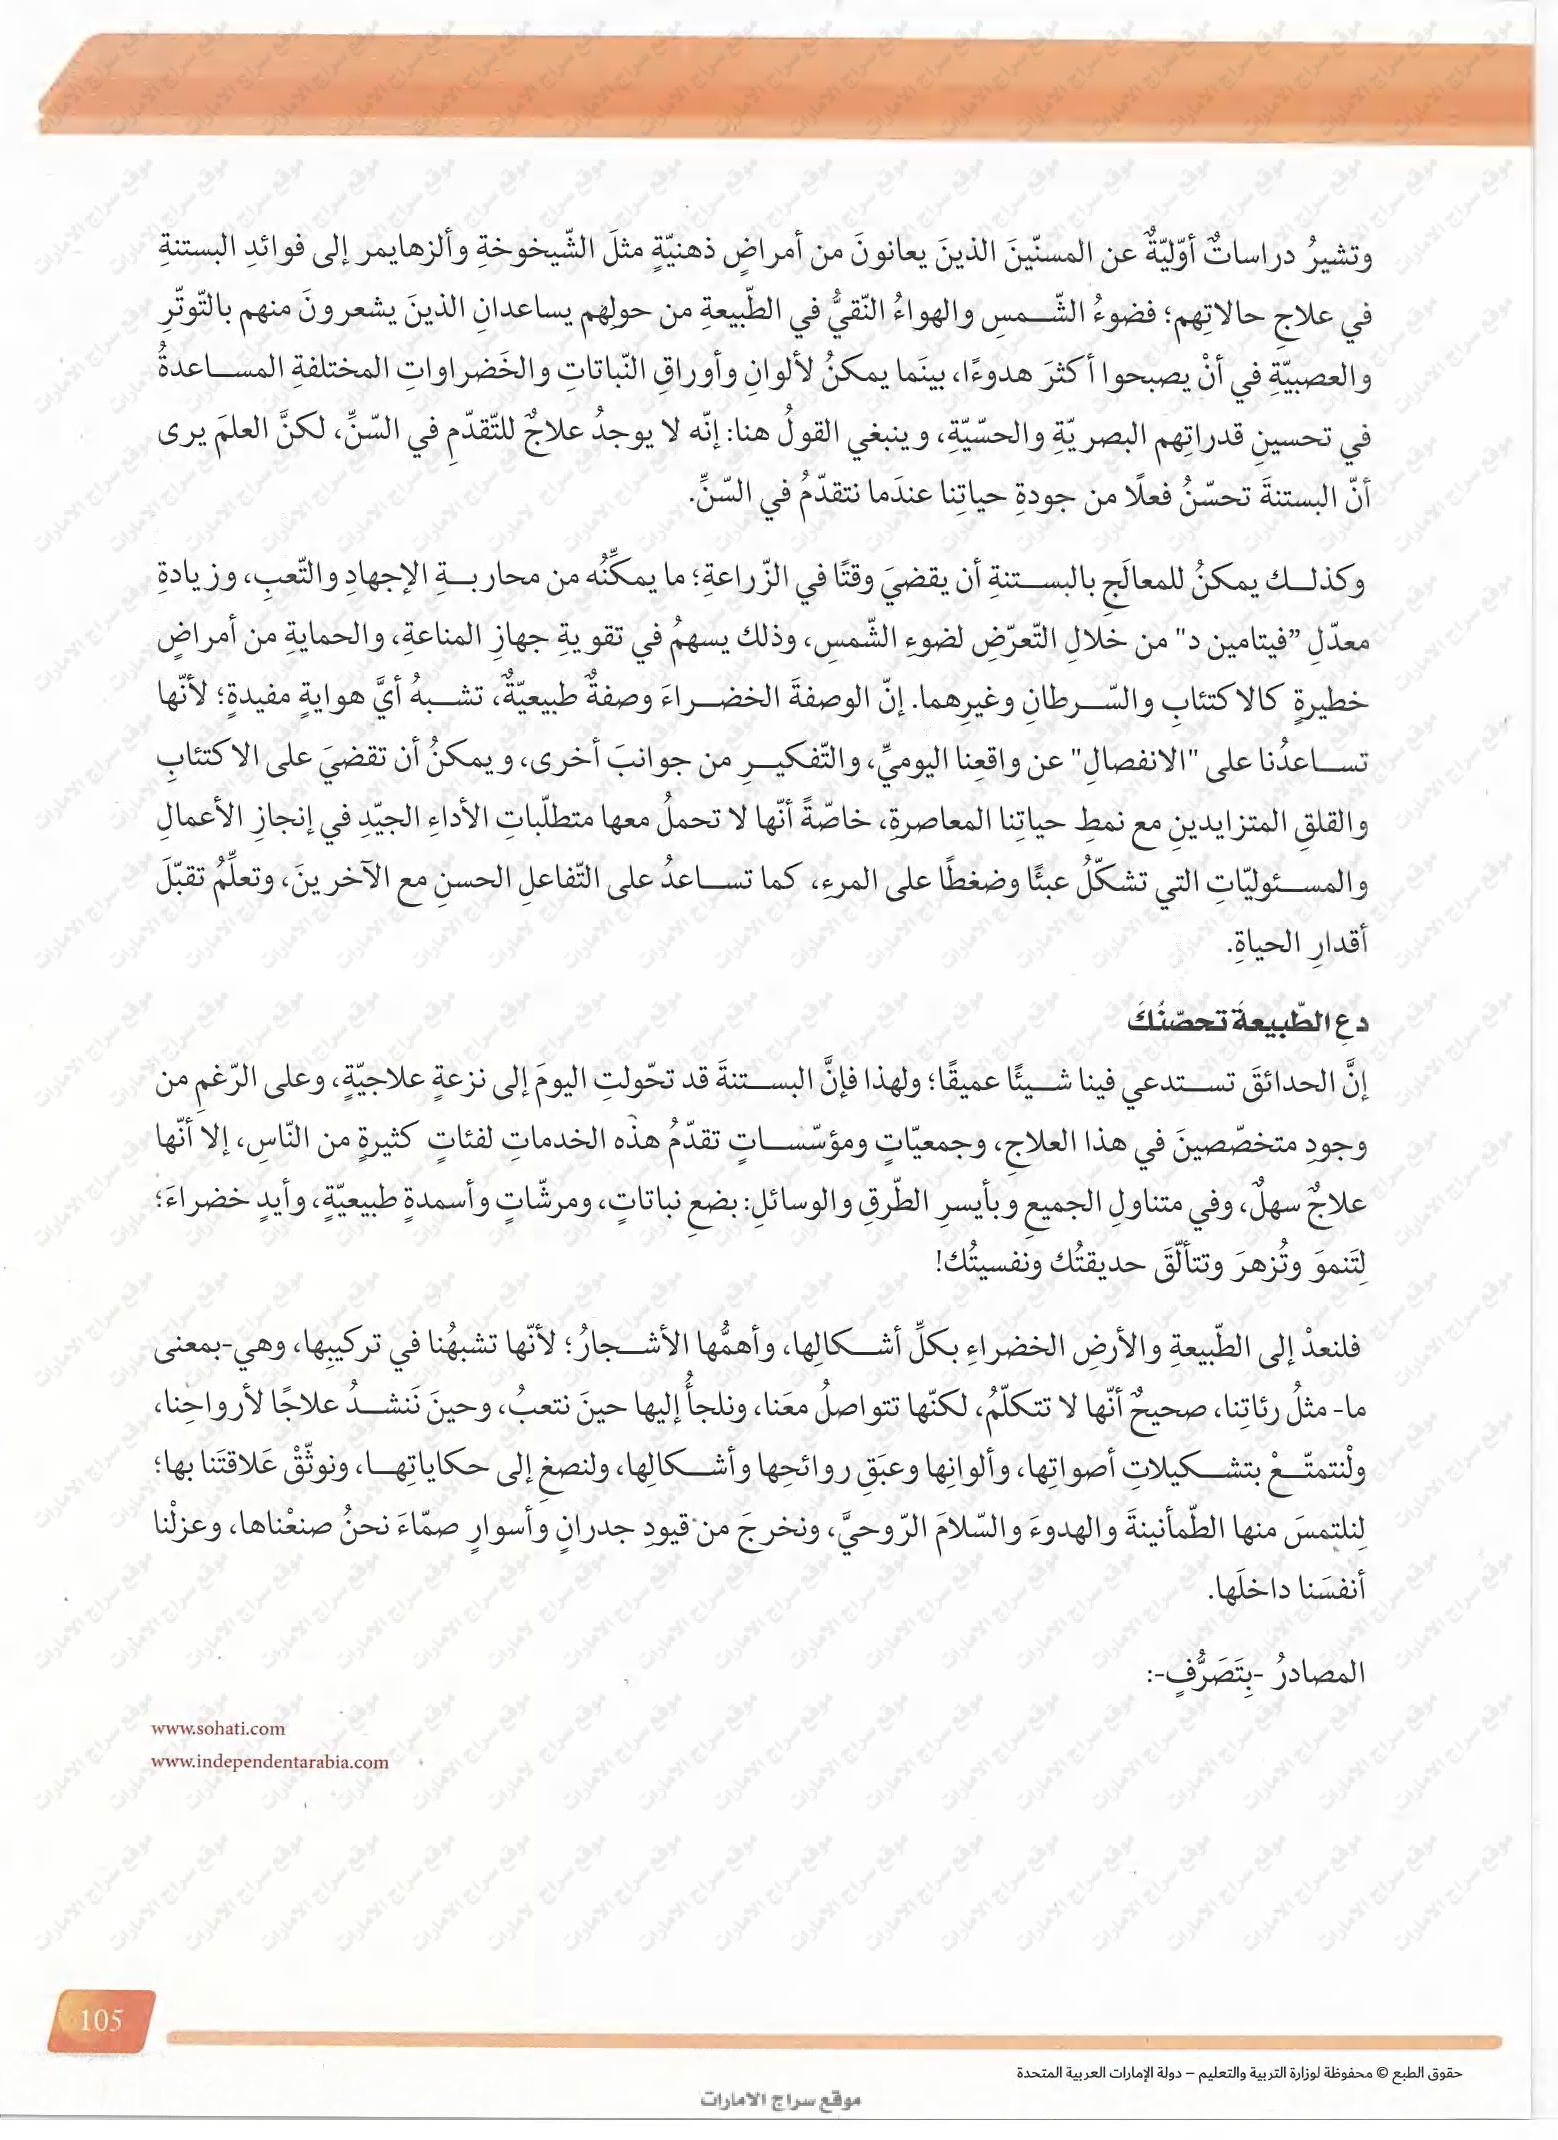 وتشيرُ دراساتٌ أوّليّةٌ عن المسنّينَ الذينَ يعانونَ من أمراضٍ ذهنيّةٍ مثلَ الشّيخوخةِ وألزهايمر إلى فوائدِ البستنةِ
في علاجِ حالاتِهم؛ فضوءُ الشّمسِ والهواءُ النّقيُّ في الطّبيعةِ من حولِهم يساعدانِ الذينَ يشعرونَ منهم بالتّوتّرِ
والعصبيّةِ في أنْ يصبحوا أكثرَ هدوءًا، بينَما يمكنُ لألوانِ وأوراقِ النّباتاتِ والخَضراواتِ المختلفةِ المساعدةُ
في تحسينِ قدراتِهم البصريّةِ والحسّيّةِ، وينبغي القولُ هنا: إنّه لا يوجدُ علاجٌ للتّقدّمِ في السّنِّ، لكنَّ العلمَ يرى
أنّ البستنةَ تحسّنُ فعلًا من جودةِ حياتِنا عندَما نتقدّمُ في السّنِّ.
وكذلك يمكنُ للمعالَجِ بالبستنةِ أن يقضيَ وقتًا في الزّراعةِ؛ ما يمكِّنُه من محاربةِ الإجهادِ والتّعبِ، وزيادةِ
معدّلِ ”فيتامين د" من خلالِ التّعرّضِ لضوءِ الشّمسِ، وذلك يسهمُ في تقويةِ جهازِ المناعةِ، والحمايةِ من أمراضٍ
خطيرةٍ كالاكتئابِ والسّرطانِ وغيرِهما. إنّ الوصفةَ الخضراءَ وصفةٌ طبيعيّةٌ، تشبهُ أيَّ هوايةٍ مفيدةٍ؛ لأنّها
تساعدُنا على "الانفصالِ" عن واقعِنا اليوميِّ، والتّفكيرِ من جوانبَ أخرى، ويمكنُ أن تقضيَ على الاكتئابِ
والقلقِ المتزايدينِ مع نمطِ حياتِنا المعاصرةِ، خاصّةً أنّها لا تحملُ معها متطلّباتِ الأداءِ الجيّدِ في إنجازِ الأعمالِ
والمسئوليّاتِ التي تشكّلُ عبئًا وضغطًا على المرءِ، كما تساعدُ على التّفاعلِ الحسنِ مع الآخرينَ، وتعلّمُ تقبّلَ
أقدارِ الحياةِ.
دعِ الطّبيعةَ تحصّنُكَ
إنَّ الحدائقَ تستدعي فينا شيئًا عميقًا؛ ولهذا فإنَّ البستنةَ قد تحّولتِ اليومَ إلى نزعةٍ علاجيّةٍ، وعلى الرّغمِ من
وجودِ متخصّصينَ في هذا العلاجِ، وجمعيّاتٍ ومؤسّساتٍ تقدّمُ هذه الخدماتِ لفئاتٍ كثيرةٍ من النّاسِ، إلا أنّها
علاجٌ سهلٌ، وفي متناولِ الجميعِ وبأيسرِ الطّرقِ والوسائلِ: بضعِ نباتاتٍ، ومرشّاتٍ وأسمدةٍ طبيعيّةٍ، وأيدٍ خضراءَ؛
لِتَنموَ وتُزهرَ وتتألّقَ حديقتُك ونفسيتُك!
فلنعدْ إلى الطّبيعةِ والأرضِ الخضراءِ بكلِّ أشكالِها، وأهمُّها الأشجارُ؛ لأنّها تشبهُنا في تركيبِها، وهي-بمعنى
ما- مثلُ رئاتِنا، صحيحٌ أنّها لا تتكلّمُ، لكنّها تتواصلُ معَنا، ونلجأُ إليها حينَ نتعبُ، وحينَ نَنشدُ علاجًا لأرواحِنا،
ولْنتمتّعْ بتشكيلاتِ أصواتِها، وألوانِها وعبَقِ روائحِها وأشكالِها، ولنصغِ إلى حكاياتِها، ونوثّقْ عَلاقتَنا بها؛
لِنلتمسَ منها الطّمأنينةَ والهدوءَ والسّلامَ الرّوحيَّ، ونخرجَ من قيودِ جدرانٍ وأسوارٍ صمّاءَ نحنُ صنعْناها، وعزلْنا
أنفسَنا داخلَها.
المصادرُ -بِتَصَرُّفٍ-:
www.sohati.com
www.independentarabia.com
105
حقوق الطبع © محفوظة لوزارة التربية والتعليم – دولة الإمارات العربية المتحدة
موقع سراج الامارات